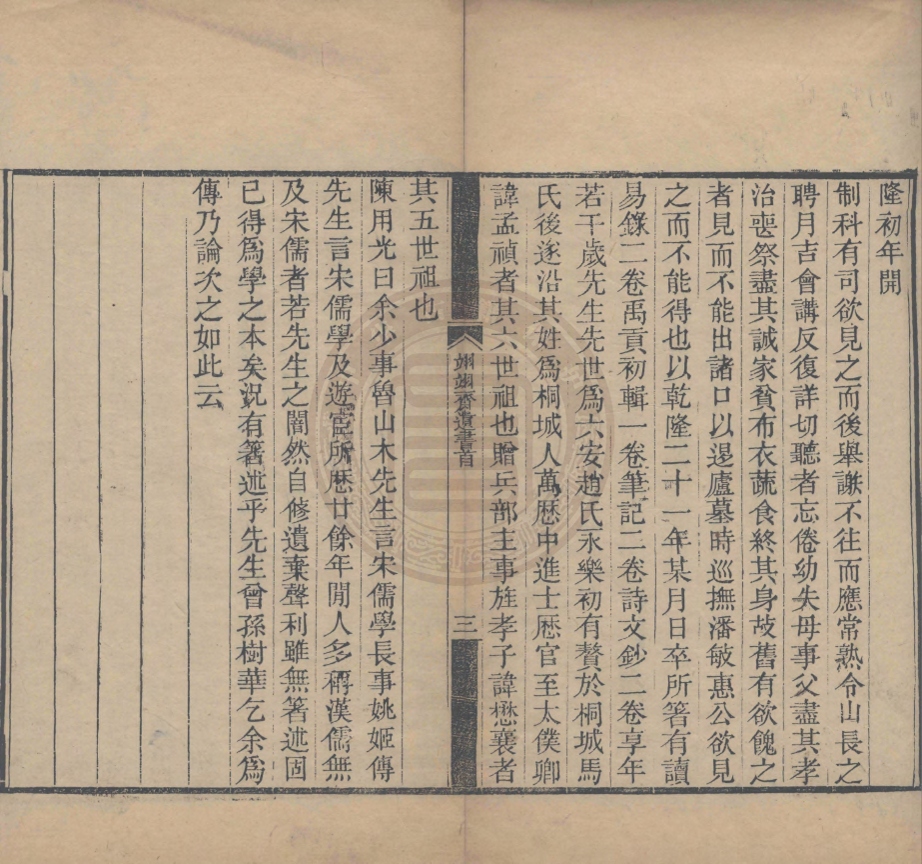 隆初年開
制科有司欲見之而後舉謝不往而應常熟令山長之
聘月吉會講反復詳切聽者忘倦幼失母事父盡其孝
治喪祭盡其誠家貧布衣蔬食終其身故舊有欲餽之
者見而不能出諸口以退廬墓時巡撫潘敏惠公欲見
之而不能得也以乾隆二十一年某月日卒所箸有讀
易錄二卷禹貢初輯一卷筆記二卷詩文鈔二卷享年
若干歲先生先世爲六安趙氏永樂初有贅於桐城馬
氏後遂沿其姓爲桐城人萬厯中進士厯官至太僕卿
諱孟禎者其六世祖也贈兵部主事旌孝子諱懋襄者
齋遺書首
三
其五世祖也
陳用光曰余少事魯山木先生言宋儒學長事姚姬傳
先生言宋儒學及遊宦所厯廿餘年閒人多稱漢儒無
及宋儒者若先生之闇然自修遺棄聲利雖無箸述固
已得爲學之本矣況有箸述乎先生曾孫樹華乞余爲
傳乃論次之如此云